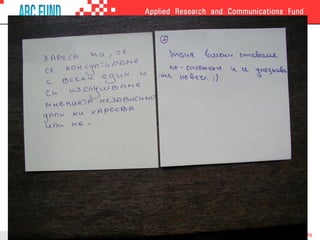 ARC FUND
Applied Research and Communications Fund
ХАРЕСА МИ, ЧЕ
СЕ КОНСУЛТИРАМЕ
С ВСЕКИ ЕДИН И
СИ ИЗСЛУШВАМЕ
МНЕНИЯТА НЕЗАВИСИМО
ДАЛИ НИ ХАРЕСВА
ИЛИ НЕ.
всички ставаме
по-сплотени и се опознава
ме повече. ;)